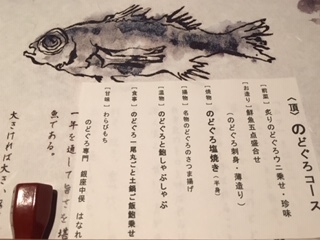 〈頂〉のどぐろコース
［前菜］炙りのどぐろウニ乗せ・珍味
［お造り］鮮魚五点盛合せ
（のどぐろ刺身・薄造り）
［焼物］のどぐろ塩焼き（半身）
［揚物］名物のどぐろのさつま揚げ
［温物］のどぐろと鮑しゃぶしゃぶ
［食事］のどぐろ一尾丸ごと土鍋ご飯鮑乗せ
［甘味］わらびもち
のどぐろ専門 銀座中俣 はなれ
一年を通して旨さを
魚である。
大きければ大き